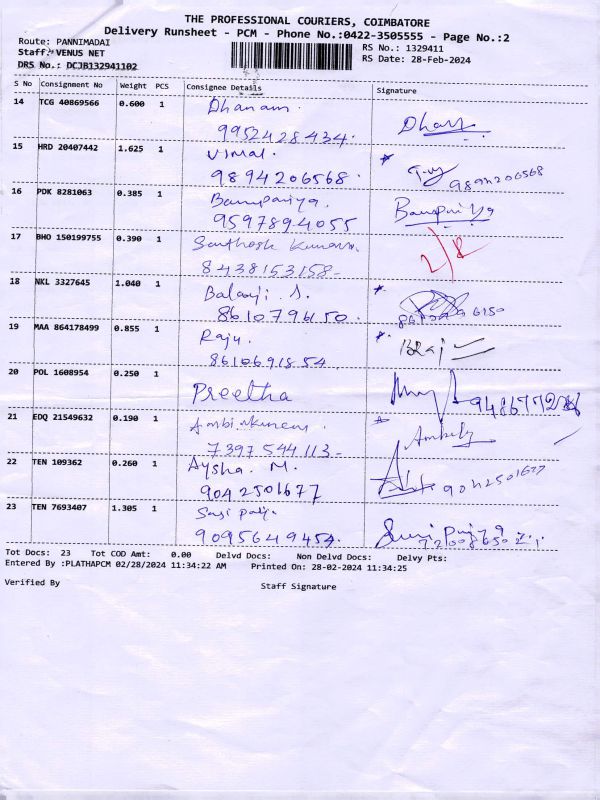 THE PROFESSIONAL COURIERS, COIMBATORE
Delivery Runsheet - PCM - Phone No.:0422-3505555 - Page No.:2
Route: PANNIMADAI
RS No.: 1329411
Staff: VENUS NET
RS Date: 28-Feb-2024
DRS No.: DCJB132941102
S No Consignment No Weight PCS Consignee Details Signature
14 TCG 40869566 0.600 1 Dhanam.
9952428434.
15 HRD 20407442 1.625 1 Vimal.
9894206568. 9894206568
16 PDK 8281063 0.385 1
9597894055
17 BHO 150199755 0.390 1 Santhosh Kumar.
8438153158-
18 NKL 3327645 1.040 1 Balaji. S.
8610796150.
19 MAA 864178499 0.855 1 Raju.
8610691854
20 POL 1608954 0.250 1 Preetha
21 EDQ 21549632 0.190 1
7397544113-
22 TEN 109362 0.260 1 Aysha. M.
9042501677 9042501677
23 TEN 7693407 1.305 1
9095649454.
Tot Docs: 23 Tot COD Amt: 0.00 Delvd Docs: Non Delvd Docs: Delvy Pts:
Entered By :PLATHAPCM 02/28/2024 11:34:22 AM Printed On: 28-02-2024 11:34:25
Verified By Staff Signature